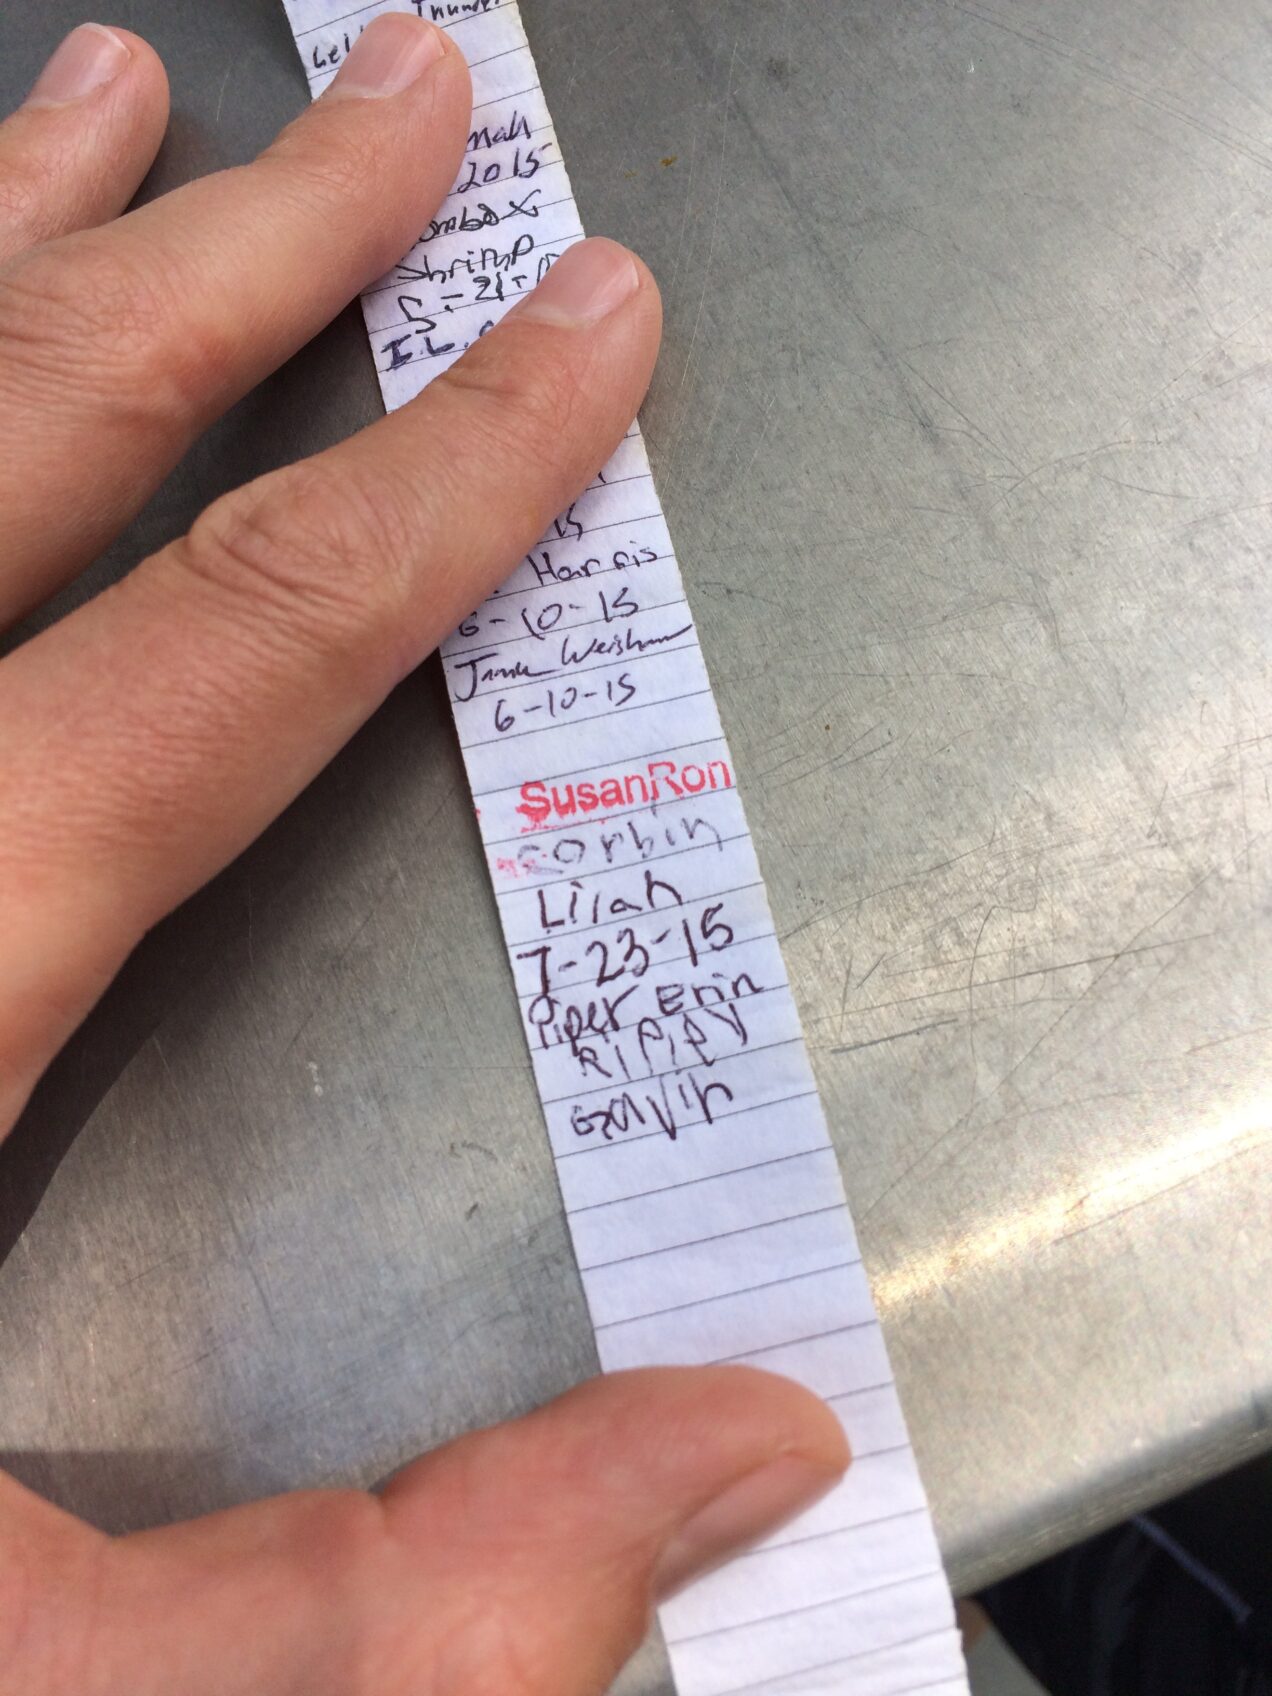 Thunder
mah
2015
ombox
Shrimp
S-21-
I.L.
15
Harris
6-10-15
Weishaar
6-10-15
SusanRon
Corbin
Lilah
7-23-15
Piper Erin
Ripley
Gavin